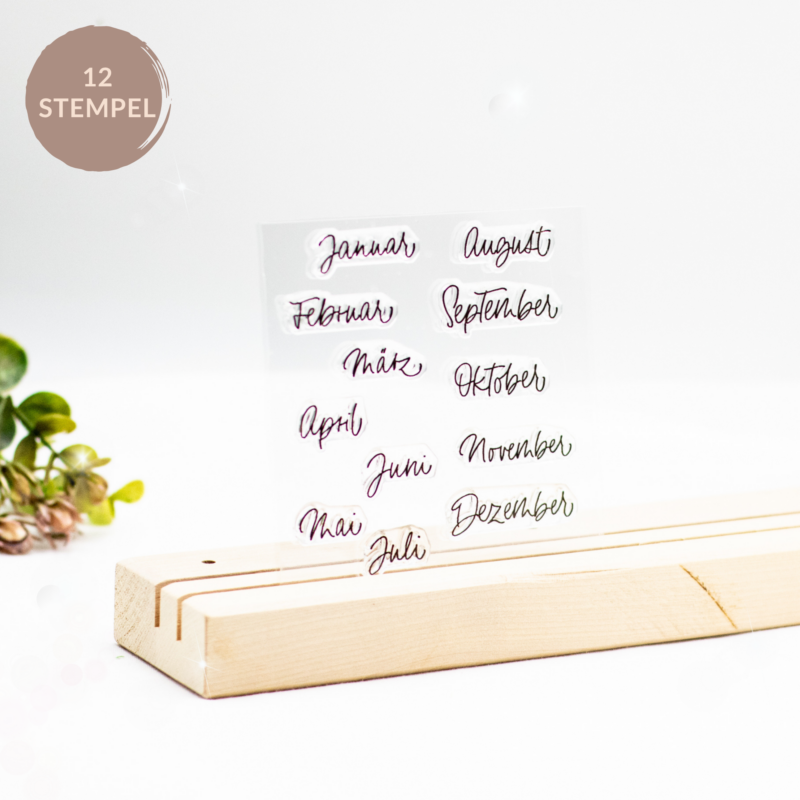 12
STEMPEL
Januar
Februar
März
April
Juni
Mai
Juli
August
September
Oktober
November
Dezember